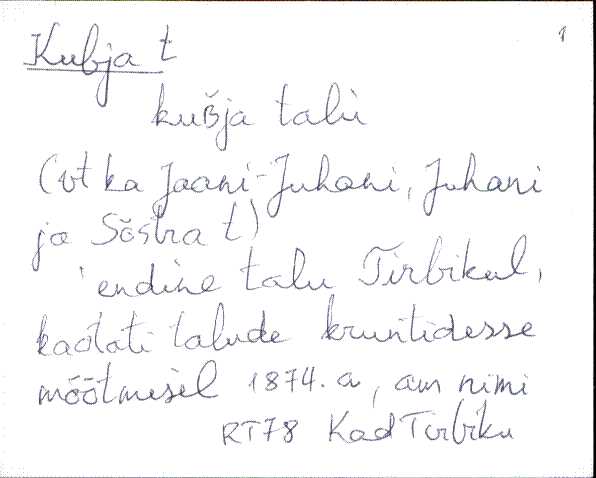 Kubja t 1
kuʙ̌ja talù
(vt ka Jaani-Juhani, Juhani
ja Sõstra t)
'endine talu Tirbikul,
kaotati talude kruntidesse
mõõtmisel 1874. a, am nimi
RT78 Kad Tirbiku